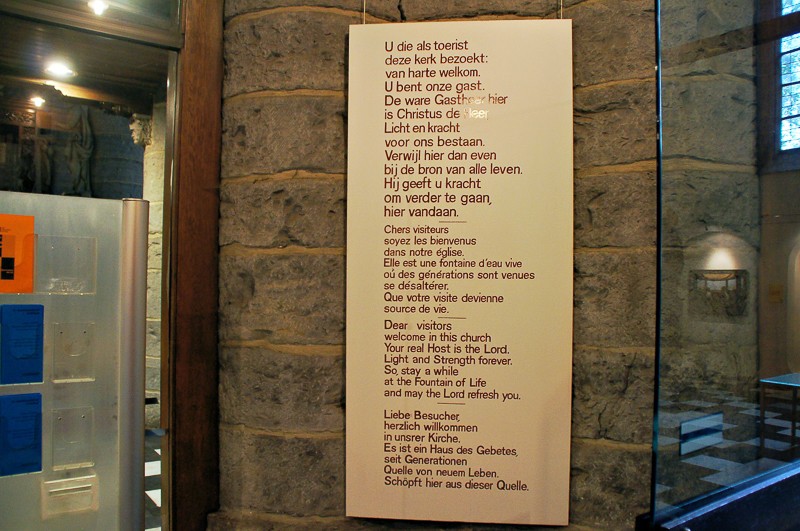 U die als toerist
deze kerk bezoekt:
van harte welkom.
U bent onze gast.
De ware Gastheer hier
is Christus de Heer
Licht en kracht
voor ons bestaan.
Verwijl hier dan even
bij de bron van alle leven.
Hij geeft u kracht
om verder te gaan,
hier vandaan.
Chers visiteurs
soyez les bienvenus
dans notre église.
Elle est une fontaine d'eau vive
oú des générations sont venues
se désaltérer.
Que votre visite devienne
source de vie.
Dear visitors
welcome in this church
Your real Host is the Lord.
Light and Strength forever.
So, stay a while
at the Fountain of Life
and may the Lord refresh you.
Liebe Besucher,
herzlich willkommen
in unsrer Kirche.
Es ist ein Haus des Gebetes,
seit Generationen
Quelle von neuem Leben.
Schöpft hier aus dieser Quelle.